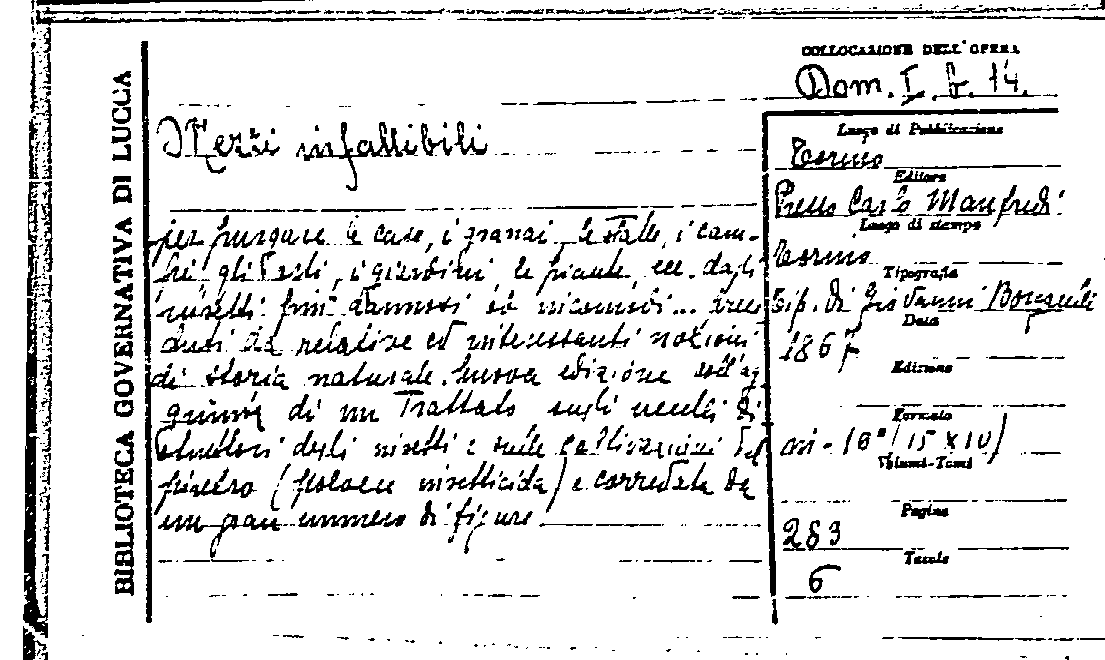 BIBLIOTECA GOVERNATIVA DI LUCCA
COLLOCAZIONE DELL'OPERA
Dom. I. b. 14.
Mezzi infallibili
per purgare le case, i granai, le stalle, i cam-
pi, gli orti, i giardini, le piante, ecc. dagli
insetti più dannosi ed incomodi...
da relative ed interessanti nozioni
di storia naturale. Nuova edizione coll'ag
giunta di un Trattato sugli uccelli di
struttori degli insetti e sulle coltivazioni del
piretro (polvere insetticida) e corredata da
un gran numero di figure
Luogo di Pubblicazione
Torino
Editore
Presso Carlo Manfredi
Luogo di stampa
Torino
Tipografia
Tip. di Giovanni
Data
1867
Edizione
Formato
in-16° (15 x 10)
Volumi-Tomi
Pagine
283
Tavole
6